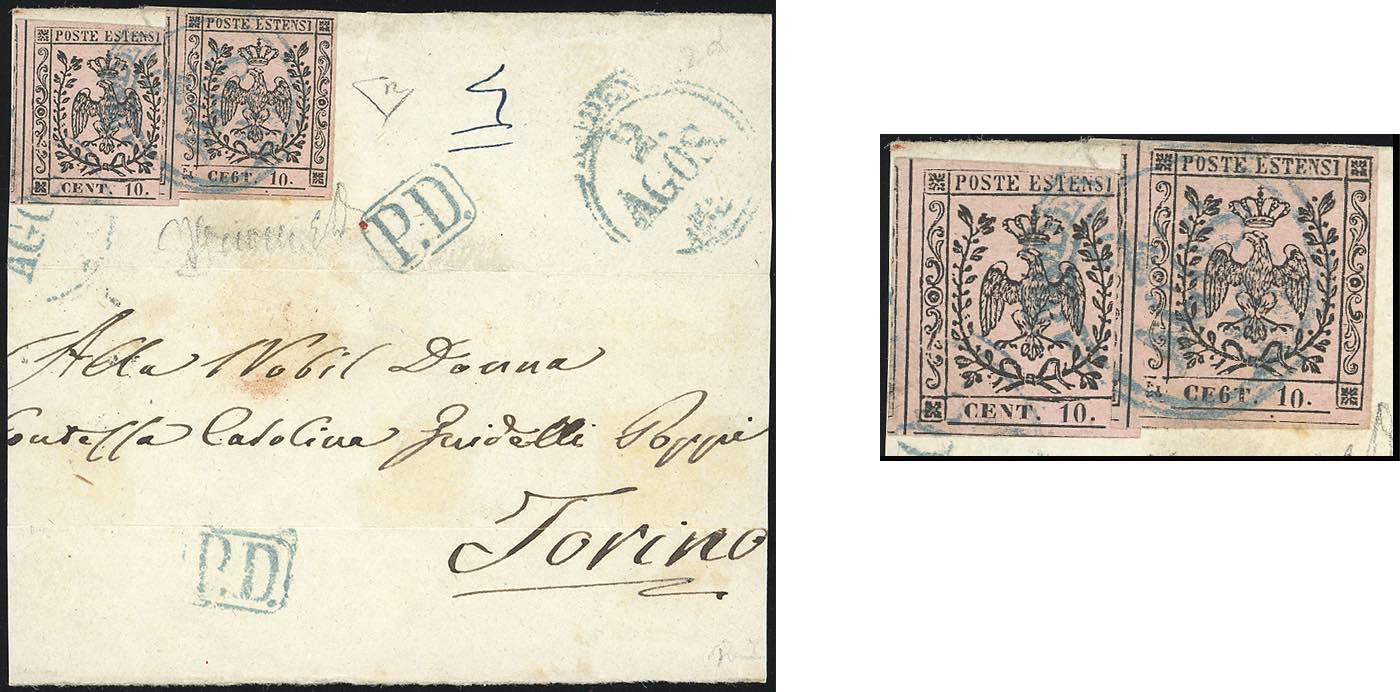 POSTE ESTENSI
CENT. 10.
POSTE ESTENSI
CE6T. 10.
AGO
P.D.
2.
AGOS
Alla Nobil Donna
Contessa Carolina Guidelli Poppi
Torino
P.D.
POSTE ESTENSI
CENT. 10.
POSTE ESTENSI
CE6T. 10.